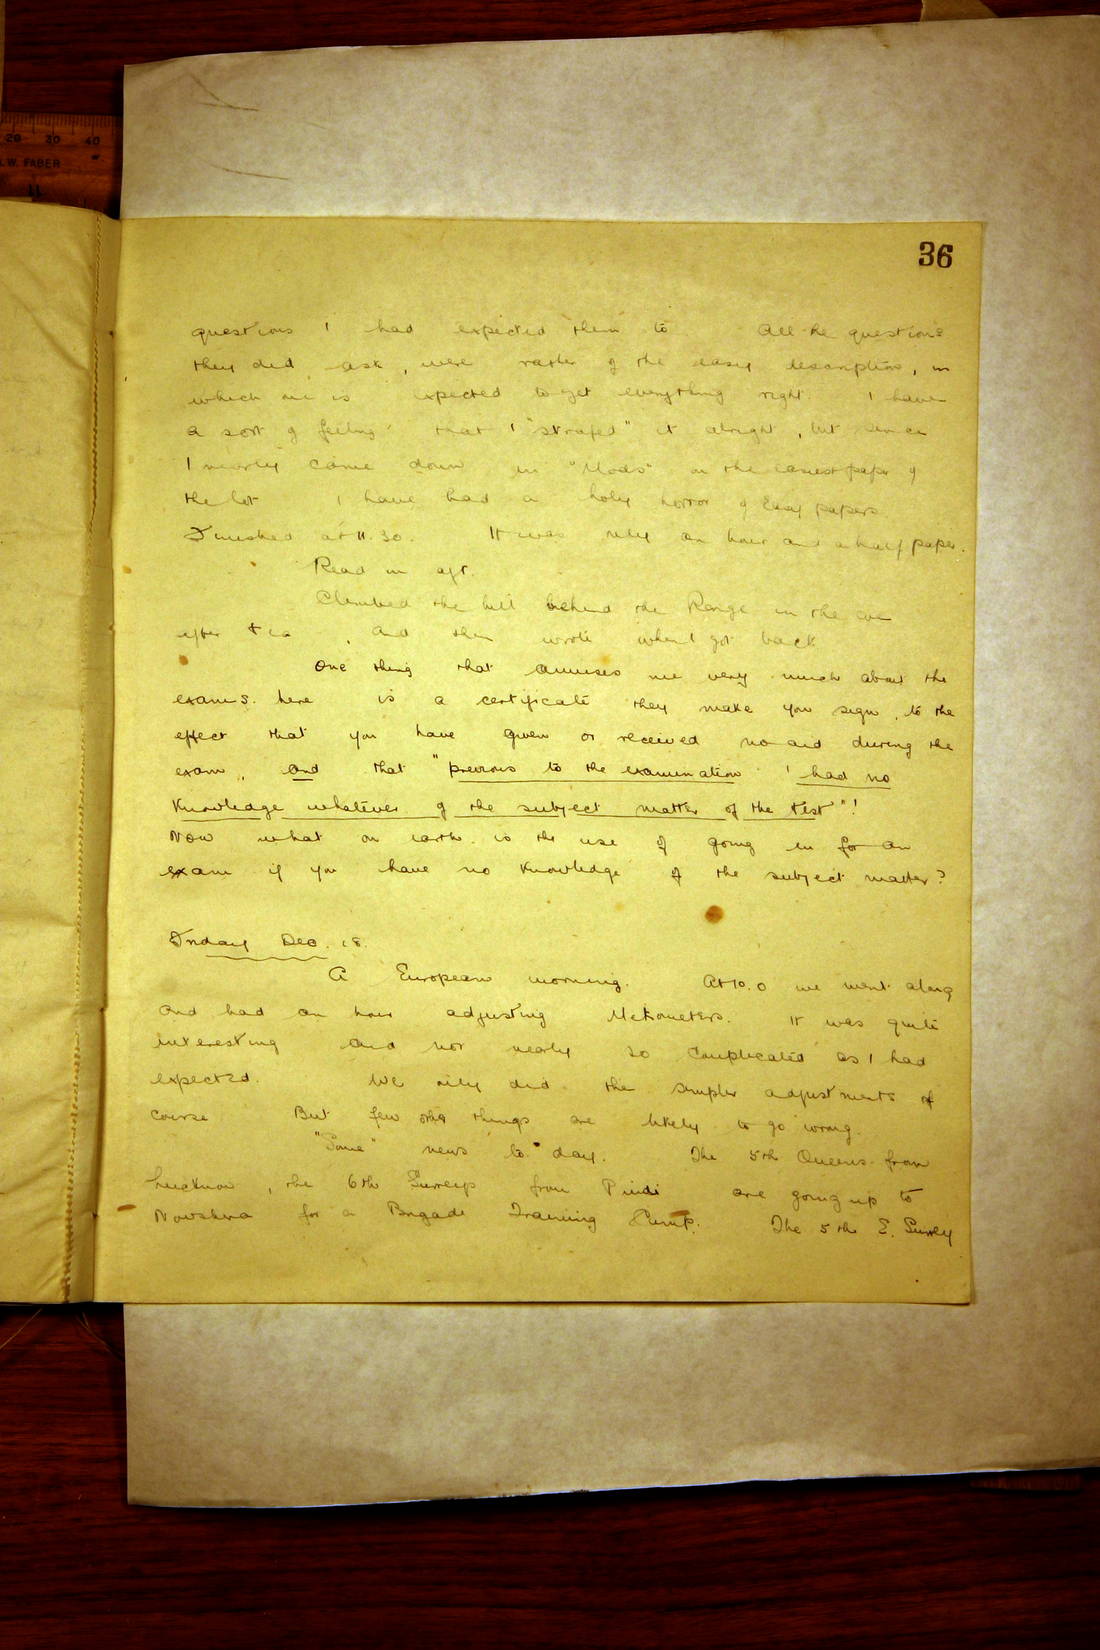 20 30 40
W. FABER
11
36
questions I had expected them to All the questions
they did ask, were rather of the easy description, in
which one is expected to get everything right. I have
a sort of feeling that I "strafed" it alright, but since
I nearly came down in "Mods" on the easiest paper of
the lot I have had a holy horror of Easy papers.
Finished at 11.30. It was only an hour and a half paper.
Read in aft.
Climbed the hill behind the Range in the eve
after tea, and then wrote when I got back
One thing that amuses me very much about the
exams. here is a certificate they make you sign, to the
effect that you have given or received no aid during the
exam, and that "previous to the examination I had no
knowledge whatever of the subject matter of the test"!
Now what on earth is the use of going in for an
exam if you have no knowledge of the subject matter?
Friday Dec. 18.
A European morning. At 10.0 we went along
and had an hour adjusting Mekometers. It was quite
interesting and not nearly so complicated as I had
expected. We only did the simpler adjustments of
course But few other things are likely to go wrong.
"Some" news to-day. The 5th Queens from
Lucknow, the 6th Surreys from Pindi are going up to
Nowshera for a Brigade Training Camp. The 5th E. Surrey